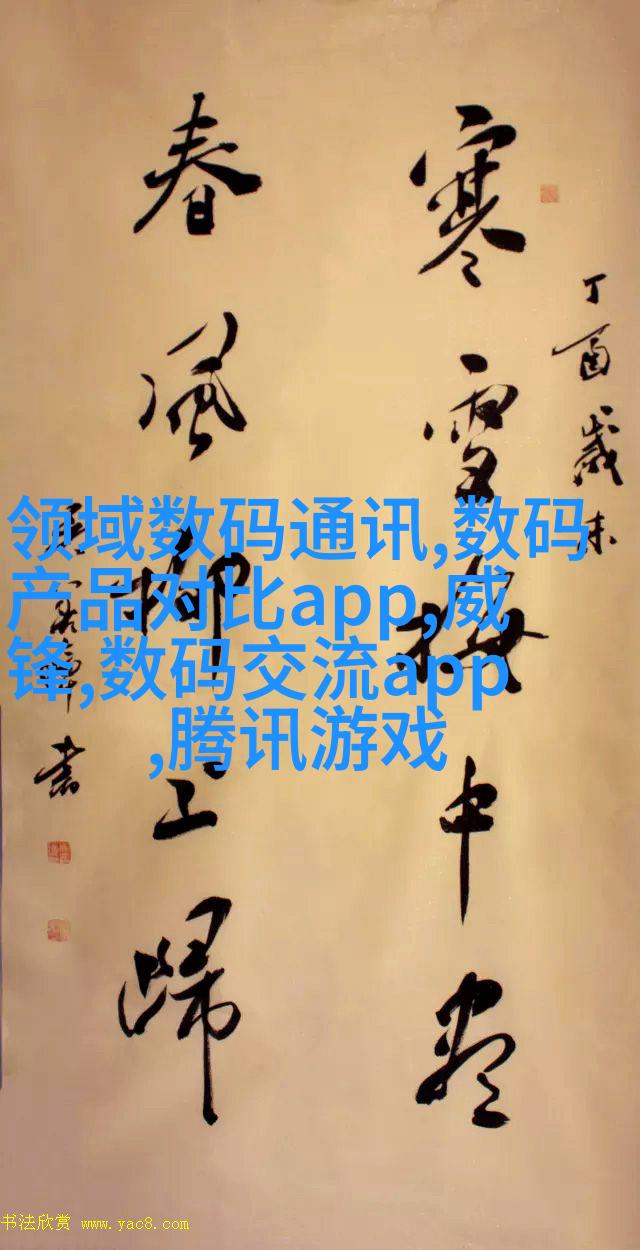 丁酉歲末
寒雪梅中盡
春風柳上歸
领域数码通讯,数码
产品对比app,威
锋,数码交流app
,腾讯游戏
书法欣赏 www.yac8.com